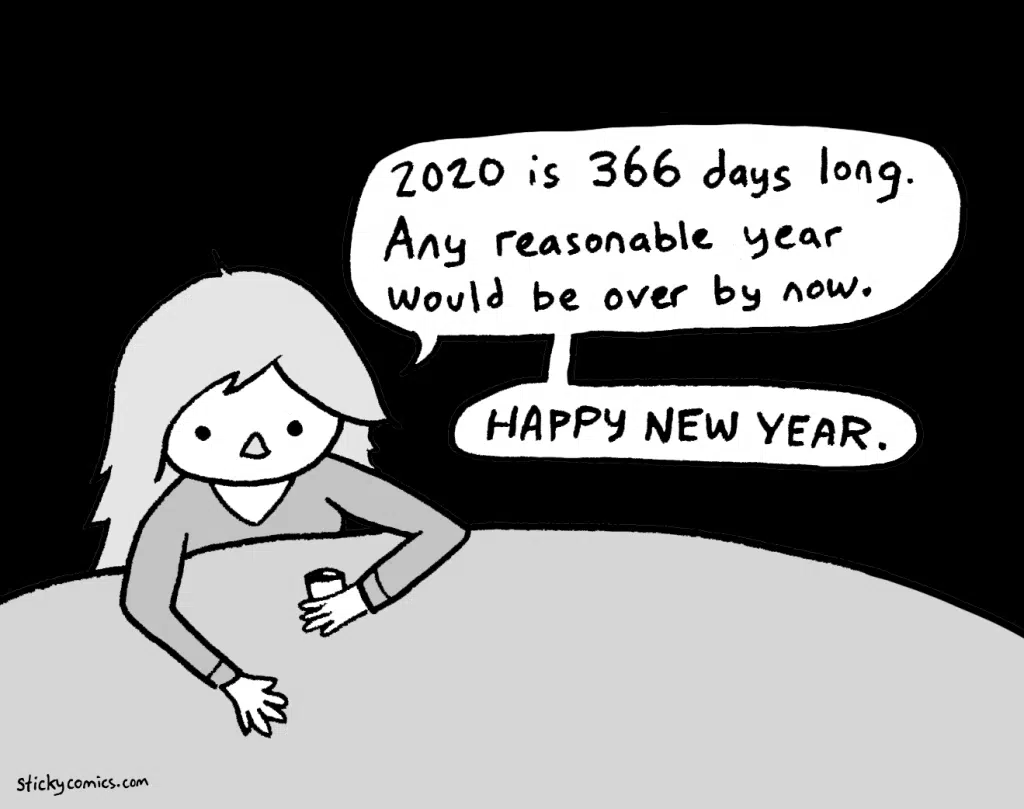 2020 is 366 days long.
Any reasonable year
would be over by now.
HAPPY NEW YEAR.
stickycomics.com